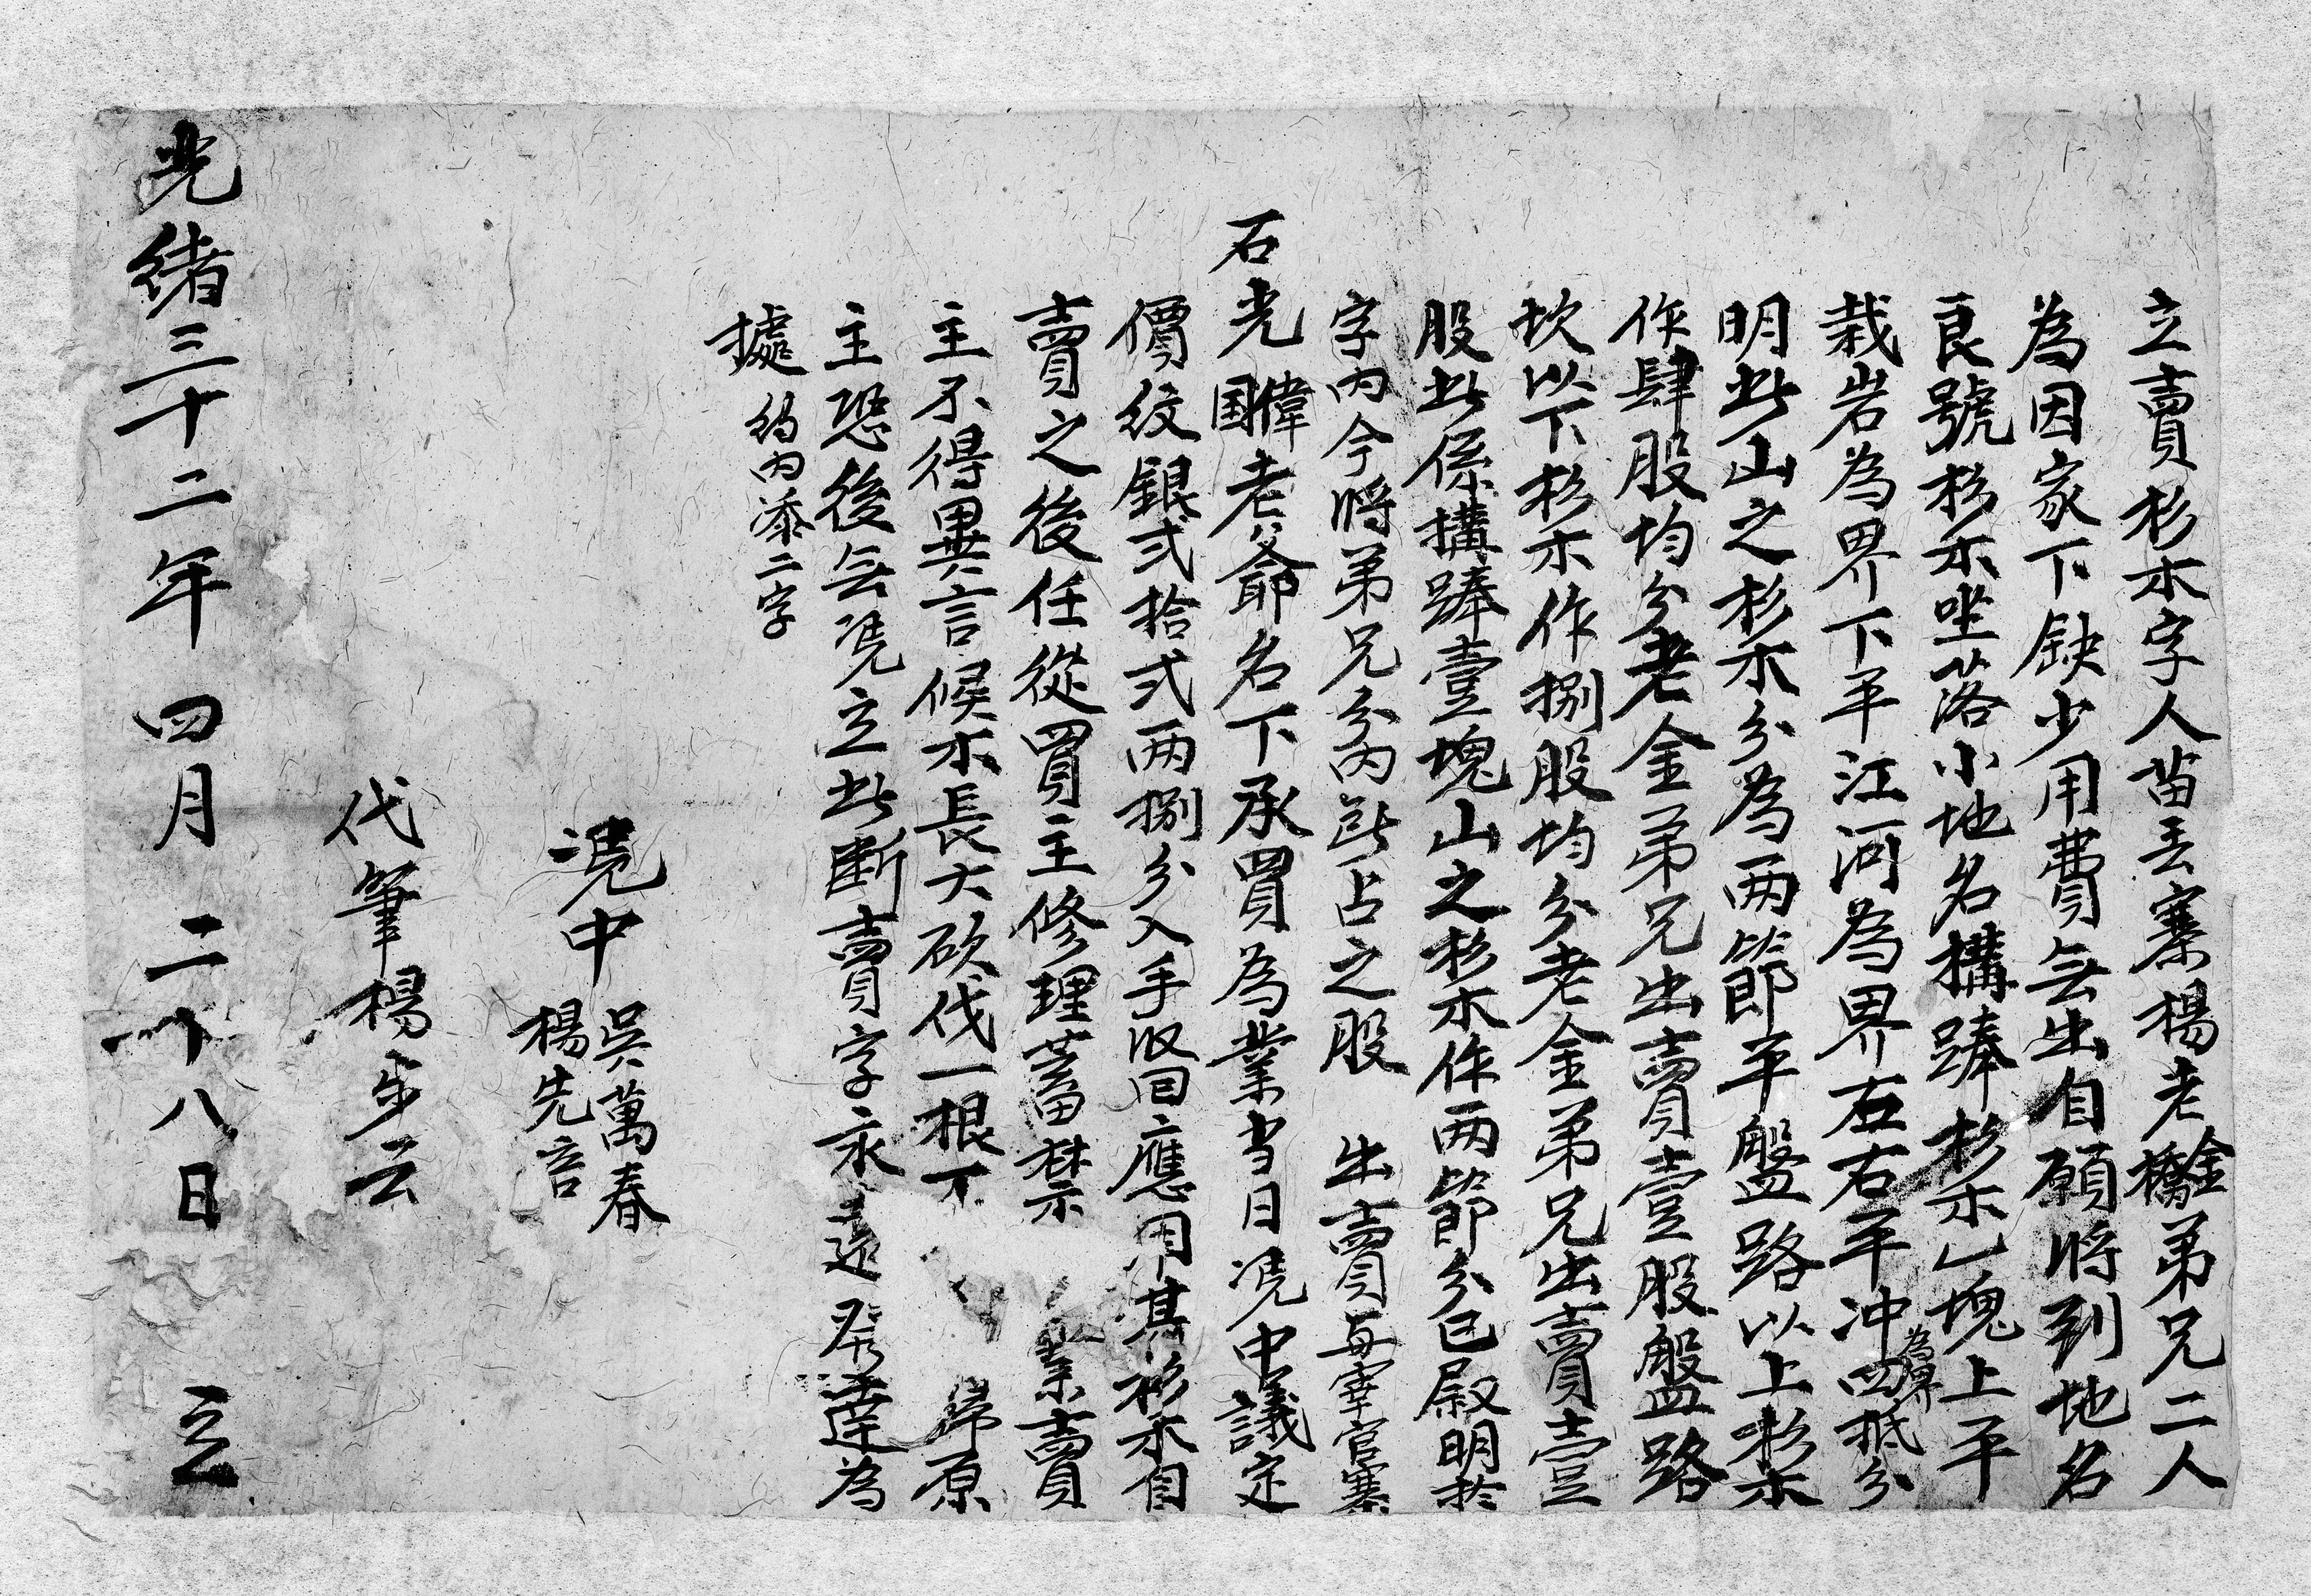 立賣杉木字人苗丟寨楊老金橋弟兄二人
為因家下缺少用費無出自願將到地名
良號杉木坐落小地名構蹥杉木乚塊上平
栽岩為界下平江河為界左右平冲為界四抵分
明此山之杉木分為两節平盤路以上杉木
作肆股均分老金弟兄出賣壹股盤路
坎以下杉木作捌股均分老金弟兄出賣壹
股此係構蹥壹塊山之杉木作两節分已殿明於
字内今將弟兄分内所占之股 出賣與宰官寨
石光国偉老爺名下承買為業当日凴中議定
價紋銀弍拾弍两捌分入手収回應用其杉木自
賣之後任從買主修理蓄禁 業賣
主不得異言候木長大砍伐一根不 歸原
主恐後無凴立此断賣字永遠發達為
據 約内添二字
凴中 吳萬春 楊先音
代筆楊步云
光緒三十二年 四月 二十八日 立